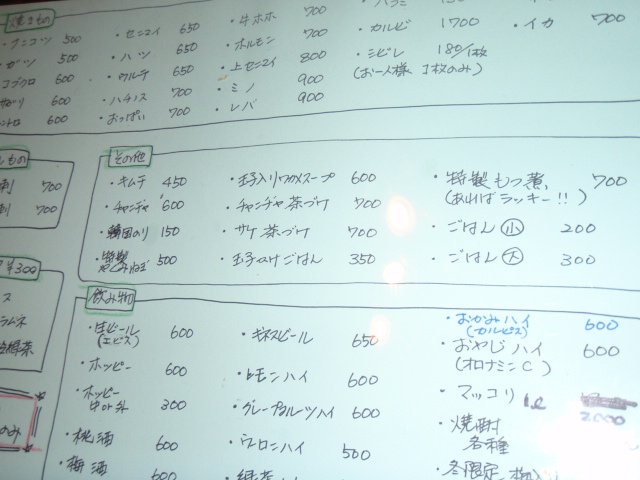 焼きもの
・ナンコツ 500
・ガツ 500
コブクロ 600
600
600
・センマイ 650
・ハツ 650
・ウルテ 650
・ハチノス 700
・おっぱい 700
・牛ホホ 700
・ホルモン 700
・上センマイ 800
・ミノ 900
・レバ 900
・カルビ 1700
・シビレ 180/1枚
(お一人様 1枚のみ)
・イカ 700
刺 700
刺 700
その他
・キムチ 450
・チャンヂャ 600
・韓国のり 150
・特製 500
・玉子入りワカメスープ 600
・チャンヂャ茶づけ 700
・サケ茶づけ 700
・玉子かけごはん 350
・特製もつ煮 700
(あればラッキー!!)
・ごはん 小 200
・ごはん 大 300
¥300
ス
ラムネ
のみ
飲み物
・生ビール 600
(エビス)
・ホッピー 600
・ホッピー 300
中or外
・桃酒 600
・梅酒 600
・ギネスビール 650
・レモンハイ 600
・グレープフルーツハイ 600
・ウーロンハイ 500
・緑茶
・おかみハイ 600
(カルピス)
・おやじハイ 600
(オロナミンC)
・マッコリ 1ℓ 2000
・焼酎
各種
・冬限定